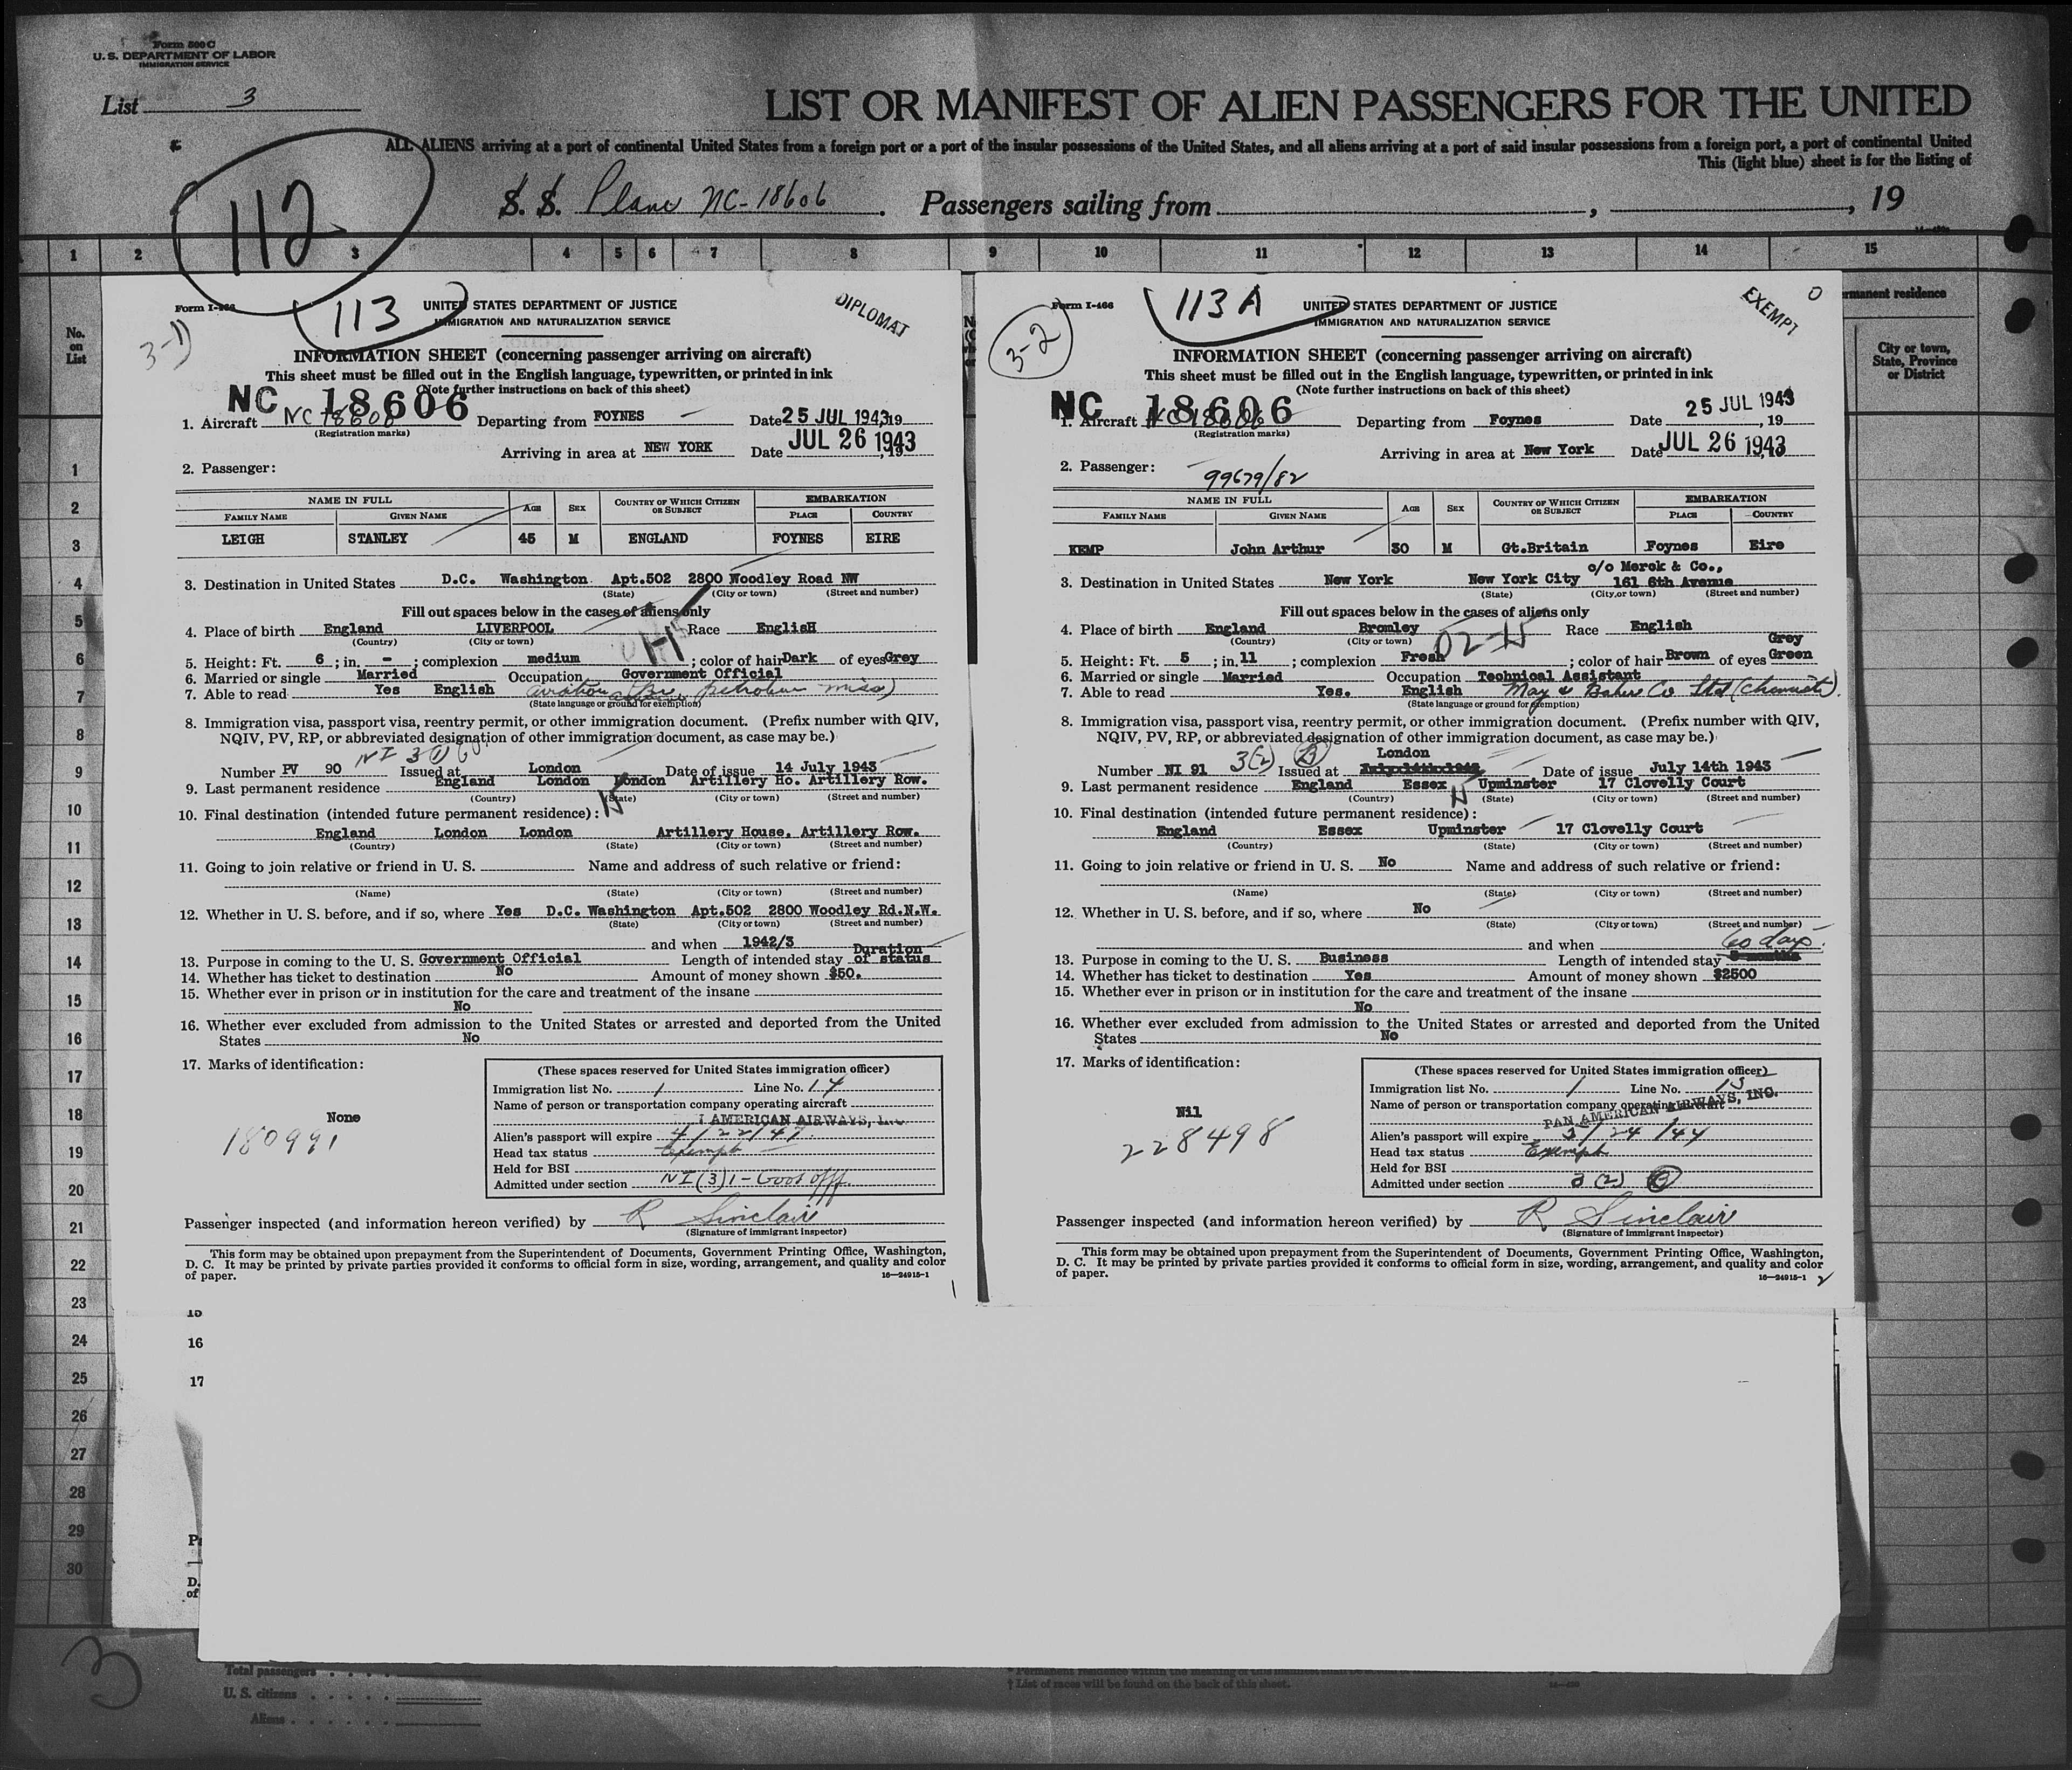 Form 500 C
U. S. DEPARTMENT OF LABOR
IMMIGRATION SERVICE
List 3
LIST OR MANIFEST OF ALIEN PASSENGERS FOR THE UNITED
ALL ALIENS arriving at a port of continental United States from a foreign port or a port of the insular possessions of the United States, and all aliens arriving at a port of said insular possessions from a foreign port, a port of continental United
This (light blue) sheet is for the listing of
112
S. S. Plane NC-18606. Passengers sailing from , , 19
1 2 3 4 5 6 7 8 9 10 11 12 13 14 15
No. on List
rmanent residence
City or town, State, Province or District
Form I-466
3-1)
113
UNITED STATES DEPARTMENT OF JUSTICE
IMMIGRATION AND NATURALIZATION SERVICE
DIPLOMAT
INFORMATION SHEET (concerning passenger arriving on aircraft)
This sheet must be filled out in the English language, typewritten, or printed in ink
(Note further instructions on back of this sheet)
NC 18606
1. Aircraft NC 18606 Departing from FOYNES Date 25 JUL 1943, 19
(Registration marks)
Arriving in area at NEW YORK Date JUL 26 1943, 19
2. Passenger:
NAME IN FULL AGE SEX COUNTRY OF WHICH CITIZEN OR SUBJECT EMBARKATION
FAMILY NAME GIVEN NAME PLACE COUNTRY
LEIGH STANLEY 45 M ENGLAND FOYNES EIRE
3. Destination in United States D.C. Washington Apt.502 2800 Woodley Road NW
(State) (City or town) (Street and number)
Fill out spaces below in the cases of aliens only
4. Place of birth England LIVERPOOL Race EnglisH
(Country) (City or town)
5. Height: Ft. 6 ; in. - ; complexion medium ; color of hair Dark of eyes Grey
6. Married or single Married Occupation Government Official
7. Able to read Yes English aviation (Br. petroleum miss)
(State language or ground for exemption)
8. Immigration visa, passport visa, reentry permit, or other immigration document. (Prefix number with QIV,
NQIV, PV, RP, or abbreviated designation of other immigration document, as case may be.)
NI 3 (1)
Number PV 90 Issued at London Date of issue 14 July 1943
9. Last permanent residence England London London Artillery Ho. Artillery Row.
(Country) (State) (City or town) (Street and number)
10. Final destination (intended future permanent residence):
England London London Artillery House. Artillery Row.
(Country) (State) (City or town) (Street and number)
11. Going to join relative or friend in U. S. Name and address of such relative or friend:
(Name) (State) (City or town) (Street and number)
12. Whether in U. S. before, and if so, where Yes D.C. Washington Apt.502 2800 Woodley Rd.N.W.
(State) (City or town) (Street and number)
and when 1942/3
13. Purpose in coming to the U. S. Government Official Length of intended stay Duration of status
14. Whether has ticket to destination No Amount of money shown $50.
15. Whether ever in prison or in institution for the care and treatment of the insane
No
16. Whether ever excluded from admission to the United States or arrested and deported from the United
States No
17. Marks of identification:
None
180991
(These spaces reserved for United States immigration officer)
Immigration list No. 1 Line No. 14
Name of person or transportation company operating aircraft
AMERICAN AIRWAYS, INC
Alien's passport will expire 4/22/47
Head tax status Exempt
Held for BSI
Admitted under section NI(3)1-Govt off.
Passenger inspected (and information hereon verified) by R Sinclair
(Signature of immigrant inspector)
This form may be obtained upon prepayment from the Superintendent of Documents, Government Printing Office, Washington,
D. C. It may be printed by private parties provided it conforms to official form in size, wording, arrangement, and quality and color
of paper. 16—24915-1
Form I-466
3-2
113 A
UNITED STATES DEPARTMENT OF JUSTICE
IMMIGRATION AND NATURALIZATION SERVICE
EXEMPT
0
INFORMATION SHEET (concerning passenger arriving on aircraft)
This sheet must be filled out in the English language, typewritten, or printed in ink
(Note further instructions on back of this sheet)
NC 18606
1. Aircraft NC 18606 Departing from Foynes Date 25 JUL 1943, 19
(Registration marks)
Arriving in area at New York Date JUL 26 1943
2. Passenger:
99679/82
NAME IN FULL AGE SEX COUNTRY OF WHICH CITIZEN OR SUBJECT EMBARKATION
FAMILY NAME GIVEN NAME PLACE COUNTRY
KEMP John Arthur 30 M Gt.Britain Foynes Eire
c/o Merck & Co.,
3. Destination in United States New York New York City 161 6th Avenue
(State) (City or town) (Street and number)
Fill out spaces below in the cases of aliens only
4. Place of birth England Bromley Race English
(Country) (City or town)
5. Height: Ft. 5 ; in. 11 ; complexion Fresh ; color of hair Brown of eyes Grey Green
6. Married or single Married Occupation Technical Assistant
7. Able to read Yes. English May & Baker Co Ltd (chemists).
(State language or ground for exemption)
8. Immigration visa, passport visa, reentry permit, or other immigration document. (Prefix number with QIV,
NQIV, PV, RP, or abbreviated designation of other immigration document, as case may be.)
London
Number NI 91 3(2) (B) Issued at July 14th 1943 Date of issue July 14th 1943
9. Last permanent residence England Essex Upminster 17 Clovelly Court
(Country) (State) (City or town) (Street and number)
10. Final destination (intended future permanent residence):
England Essex Upminster 17 Clovelly Court
(Country) (State) (City or town) (Street and number)
11. Going to join relative or friend in U. S. No Name and address of such relative or friend:
(Name) (State) (City or town) (Street and number)
12. Whether in U. S. before, and if so, where No
(State) (City or town) (Street and number)
and when
60 days
13. Purpose in coming to the U. S. Business Length of intended stay
14. Whether has ticket to destination Yes Amount of money shown $2500
15. Whether ever in prison or in institution for the care and treatment of the insane
No
16. Whether ever excluded from admission to the United States or arrested and deported from the United
States No
17. Marks of identification:
Nil
228498
(These spaces reserved for United States immigration officer)
Immigration list No. 1 Line No. 13
Name of person or transportation company operating aircraft
PAN AMERICAN AIRWAYS, INC.
Alien's passport will expire 3/24/44
Head tax status Exempt
Held for BSI
Admitted under section 3 (2) (B)
Passenger inspected (and information hereon verified) by R Sinclair
(Signature of immigrant inspector)
This form may be obtained upon prepayment from the Superintendent of Documents, Government Printing Office, Washington,
D. C. It may be printed by private parties provided it conforms to official form in size, wording, arrangement, and quality and color
of paper. 16—24915-1
1
2
3
4
5
6
7
8
9
10
11
12
13
14
15
16
17
18
19
20
21
22
23
24
25
26
27
28
29
30
15
16
17
D.
of
3
Total passengers
U. S. citizens
Aliens
† List of races will be found on the back of this sheet.